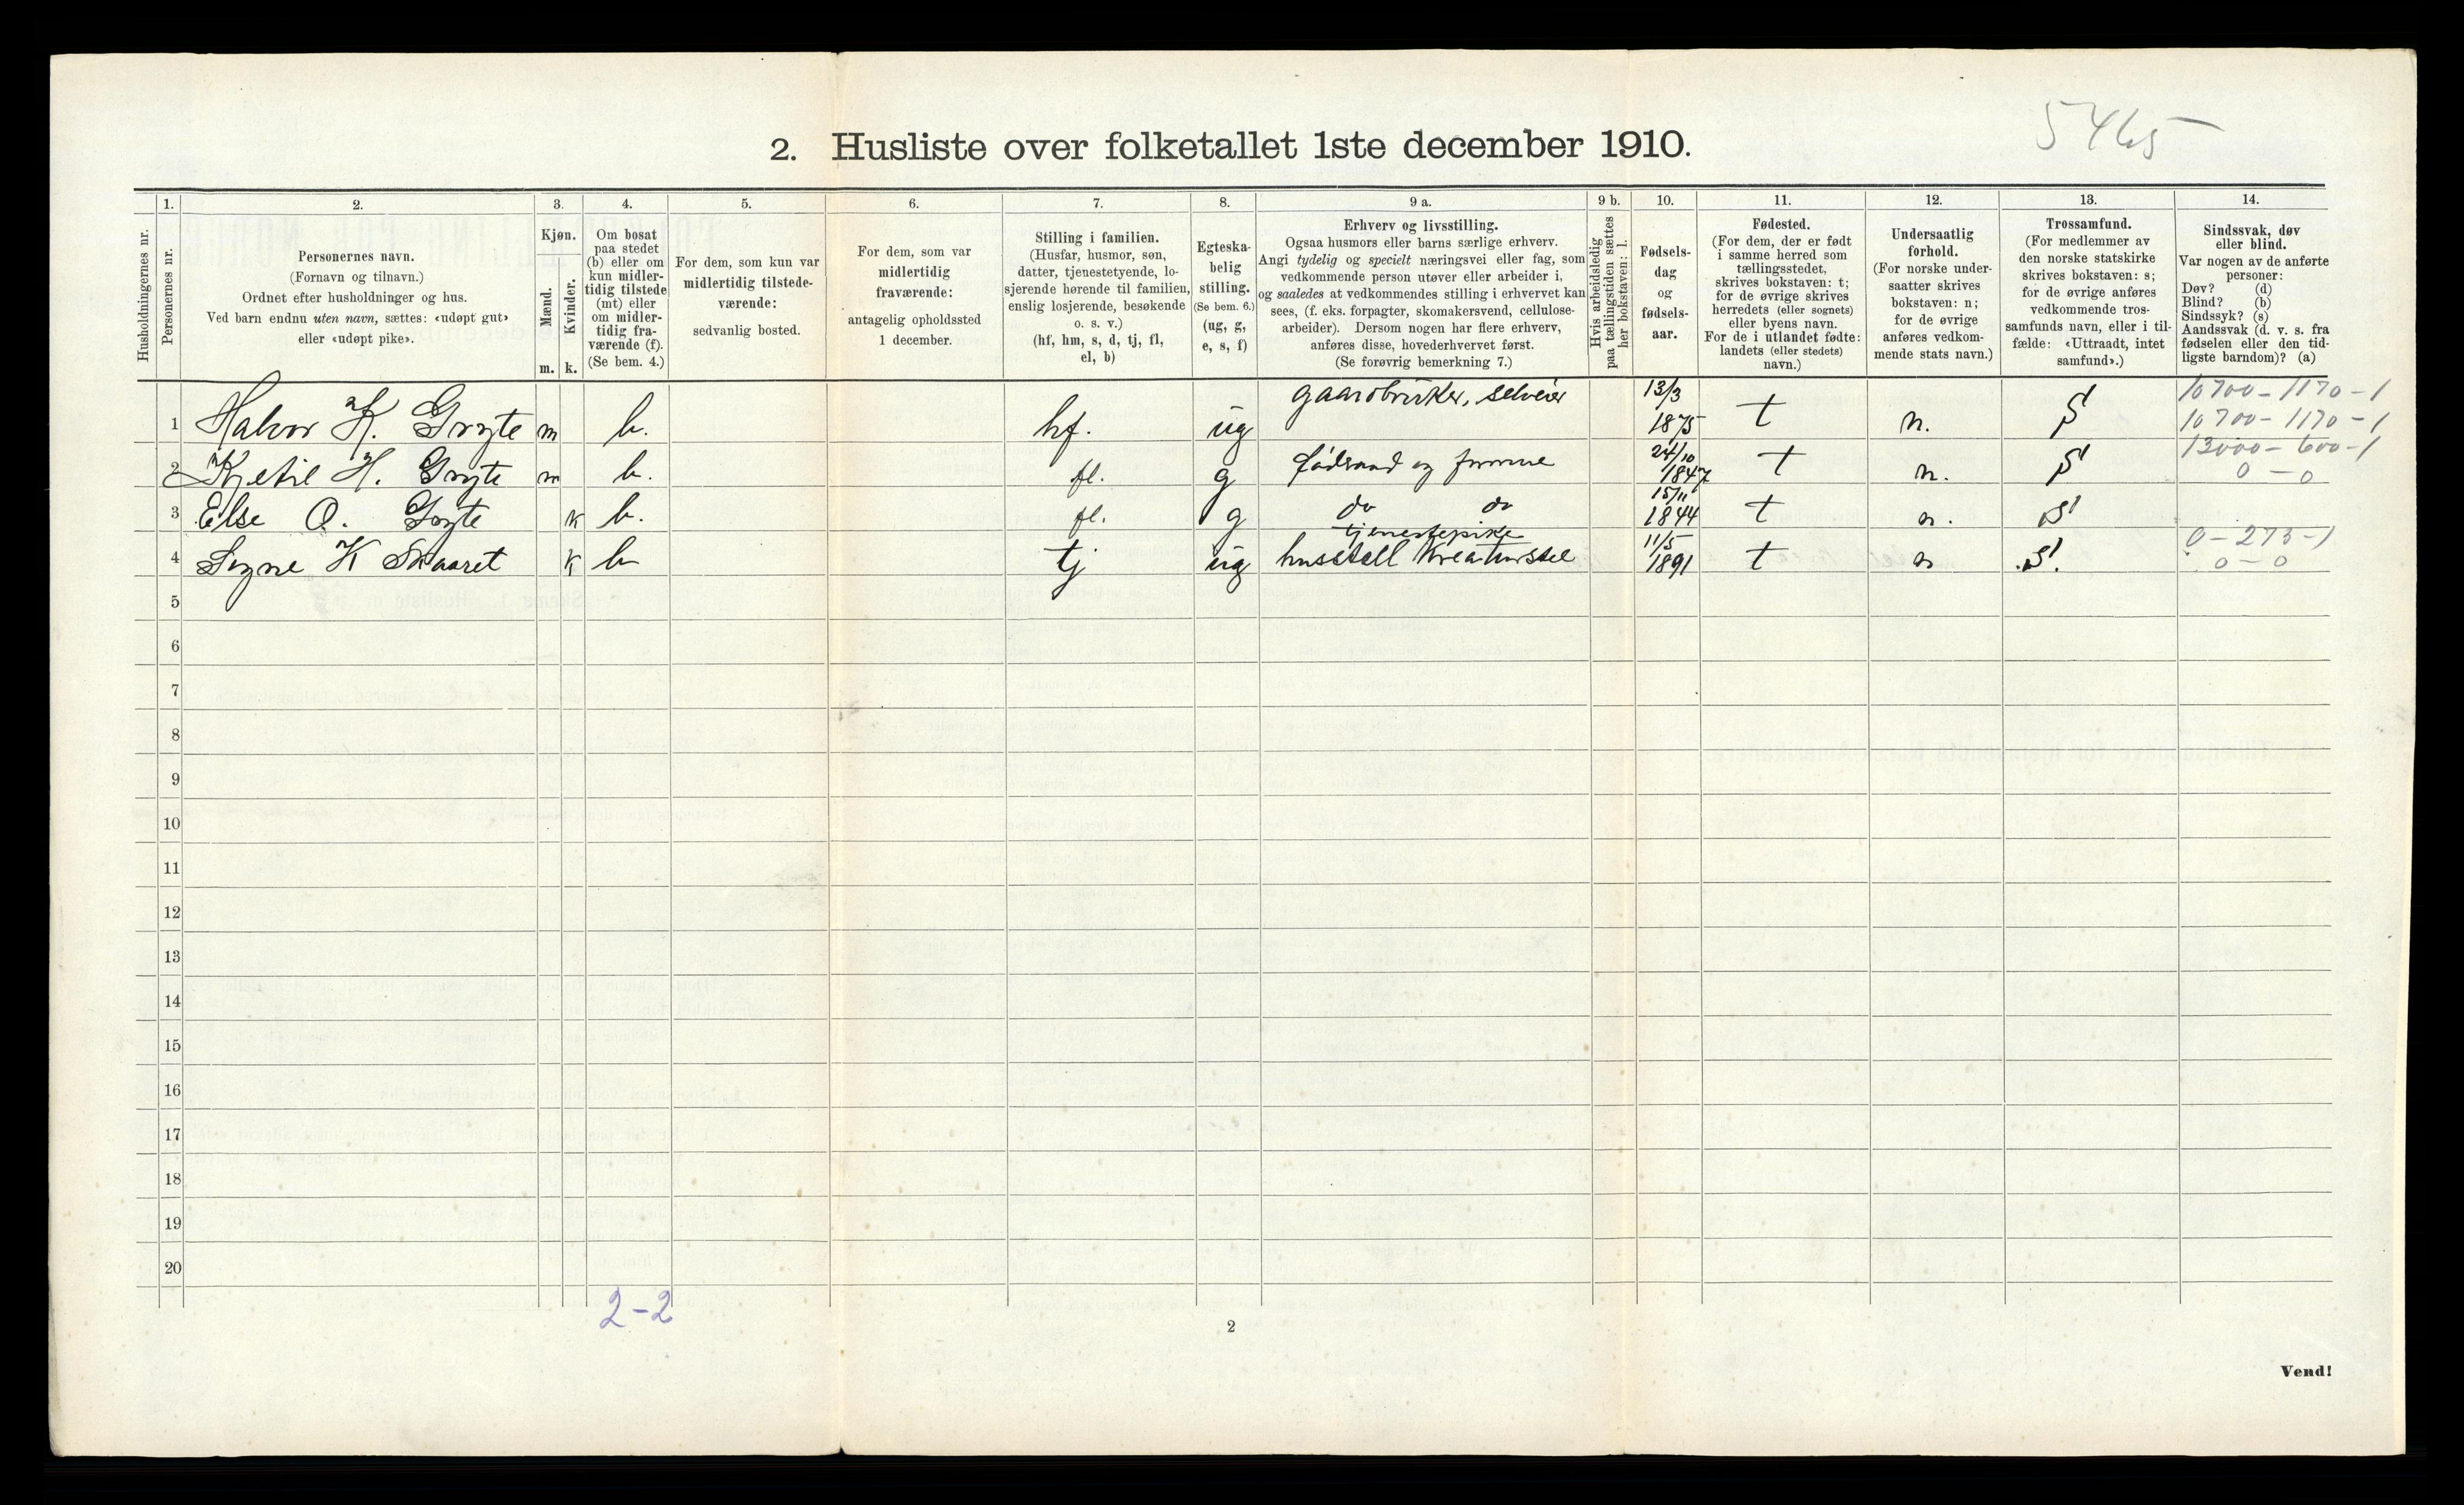 5465
2. Husliste over folketallet 1ste december 1910.
Husholdningernes nr.
1.
Personernes nr.
2.
Personernes navn.
(Fornavn og tilnavn.)
Ordnet efter husholdninger og hus.
Ved barn endnu uten navn, sættes: «udøpt gut»
eller «udøpt pike».
3.
Kjøn.
Mænd.
Kvinder.
m. k.
4.
Om bosat
paa stedet
(b) eller om
kun midler-
tidig tilstede
(mt) eller
om midler-
tidig fra-
værende (f).
(Se bem. 4.)
5.
For dem, som kun var
midlertidig tilstede-
værende:
sedvanlig bosted.
6.
For dem, som var
midlertidig
fraværende:
antagelig opholdssted
1 december.
7.
Stilling i familien.
(Husfar, husmor, søn,
datter, tjenestetyende, lo-
sjerende hørende til familien,
enslig losjerende, besøkende
o. s. v.)
(hf, hm, s, d, tj, fl,
el, b)
8.
Egteska-
belig
stilling.
(Se bem. 6.)
(ug, g,
e, s, f)
9 a.
Erhverv og livsstilling.
Ogsaa husmors eller barns særlige erhverv.
Angi tydelig og specielt næringsvei eller fag, som
vedkommende person utøver eller arbeider i,
og saaledes at vedkommendes stilling i erhvervet kan
sees, (f. eks. forpagter, skomakersvend, cellulose-
arbeider). Dersom nogen har flere erhverv,
anføres disse, hovederhvervet først.
(Se forøvrig bemerkning 7.)
9 b.
Hvis arbeidsledig
paa tællingstiden sættes
her bokstaven: l.
10.
Fødsels-
dag
og
fødsels-
aar.
11.
Fødested.
(For dem, der er født
i samme herred som
tællingsstedet,
skrives bokstaven: t;
for de øvrige skrives
herredets (eller sognets)
eller byens navn.
For de i utlandet fødte:
landets (eller stedets)
navn.)
12.
Undersaatlig
forhold.
(For norske under-
saatter skrives
bokstaven: n;
for de øvrige
anføres vedkom-
mende stats navn.)
13.
Trossamfund.
(For medlemmer av
den norske statskirke
skrives bokstaven: s;
for de øvrige anføres
vedkommende tros-
samfunds navn, eller i til-
fælde: «Uttraadt, intet
samfund».)
14.
Sindssvak, døv
eller blind.
Var nogen av de anførte
personer:
Døv? (d)
Blind? (b)
Sindssyk? (s)
Aandssvak (d. v. s. fra
fødselen eller den tid-
ligste barndom)? (a)
10700-1170-1
1 Halvor K. Gryte m b. hf. ug gaardbruker, selveier 13/3 1875 t n. S 10700-1170-1
13000-600-1
2 Kjetil H. Gryte m b. fl. g 24/10 1847 t n. S 0-0
3 Else O. Gryte k b. fl. g do do 15/11 1844 t n. S
tjenestepike 0-273-1
4 Signe K Skaaret k b tj ug husstell kreaturstel 11/5 1891 t n S. 0-0
5
6
7
8
9
10
11
12
13
14
15
16
17
18
19
20
2-2
2
Vend!